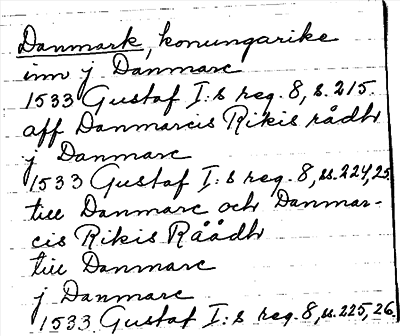 Danmark, konungarike
inn j Danmarc
1533 Gustaf I:s reg. 8, s. 215.
aff Danmarcis Rikis rådh
j Danmarc
1533 Gustaf I:s reg. 8, ss. 224, 25
till Danmarc och Danmar-
cis Rikis Råådh
till Danmarc
j Danmarc
1533 Gustaf I:s reg. 8, ss. 225, 26.